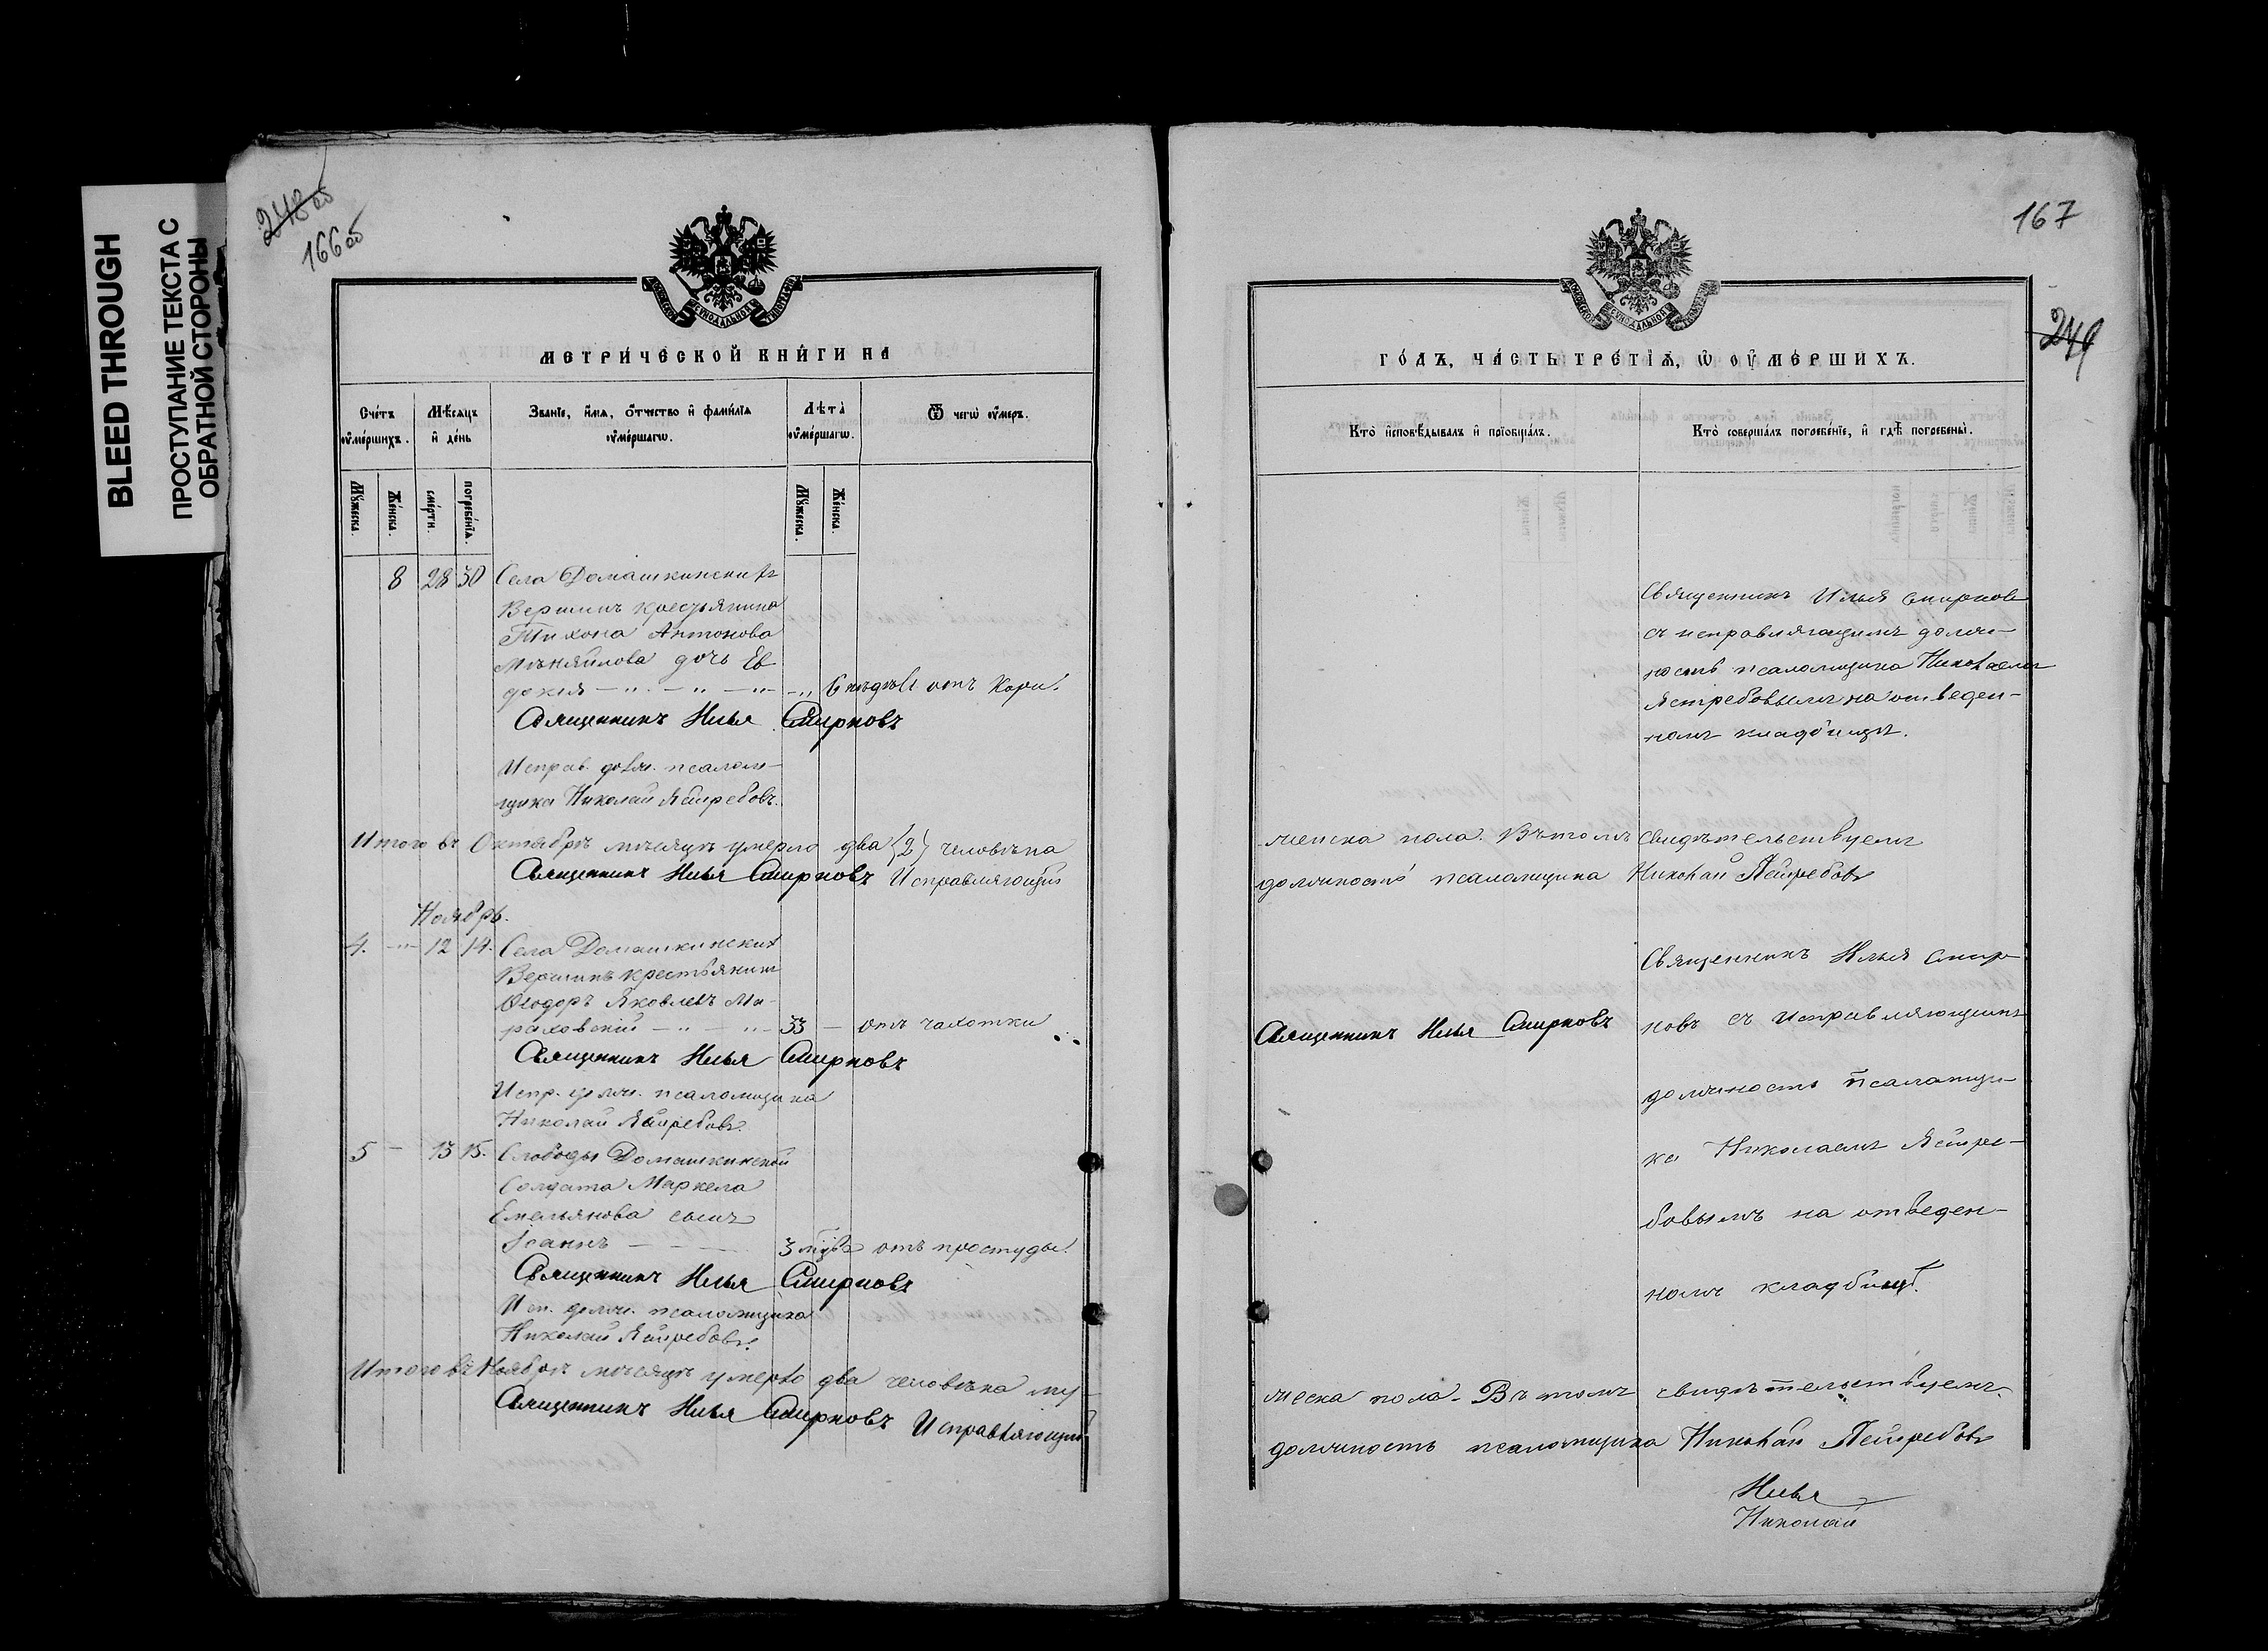 BLEED THROUGH
ПРОСТУПАНИЕ ТЕКСТА С
ОБРАТНОЙ СТОРОНЫ
248 об
166 об
МЕТРИЧЕСКОЙ КНИГИ НА
Счетъ умершихъ.
Мѣсяцъ и день
Званіе, имя, отчество и фамилія умершаго.
Лѣта умершаго.
Отъ чего умеръ.
Мужеска.
Женска.
смерти.
погребенія.
Мужеска.
Женска.
8 28 30 Села Домашкинскихъ
Вершинъ крестьянина
Тихона Антонова
дочь Ев
докія — " — " — " — " 6 недѣль отъ Кори.
Священникъ Илья Смирновъ
Исправ. долж. псалом-
щика Николай Ястребовъ.
Итого въ Октябрѣ мѣсяцѣ умерло два (2) человѣка
Священникъ Илья Смирновъ Исправляющій
Ноябрь.
4. — " — 12 14. Села Домашкинскихъ
Вершинъ крестьянинъ
Ѳеодоръ Яковлевъ Ма-
раховскій — " — " — 33 — отъ чахотки
Священникъ Илья Смирновъ
Испр. долж. псаломщика
Николай Ястребовъ.
5 — 13 15. Слободы Домашкинской
Солдата Маркела
Емельянова сынъ
Іоаннъ — — — 3 отъ простуды.
Священникъ Илья Смирновъ
Исп. долж. псаломщика
Николай Ястребовъ.
Итого въ Ноябрѣ мѣсяцѣ умерло два человѣка му-
Священникъ Илья Смирновъ Исправляющій
167
249
ГОДЪ, ЧАСТЬ ТРЕТІЯ, О УМЕРШИХЪ.
Кто исповѣдывалъ и пріобщалъ.
Кто совершалъ погребеніе, и гдѣ погребены.
Священникъ Илья Смирновъ
съ исправляющимъ долж-
ность псаломщика Николаемъ
Ястребовымъ на отведен-
номъ кладбищѣ.
женска пола. Въ томъ свидѣтельствуемъ
должность псаломщика Николай Ястребовъ
Священникъ Илья Смир-
Священникъ Илья Смирновъ
новъ съ исправляющимъ
должность псаломщи-
ка Николаемъ Ястре-
бовымъ на отведен-
номъ кладбищѣ.
жеска пола. Въ томъ свидѣтельствуемъ.
должность псаломщика Николай Ястребовъ
Илья
Николай